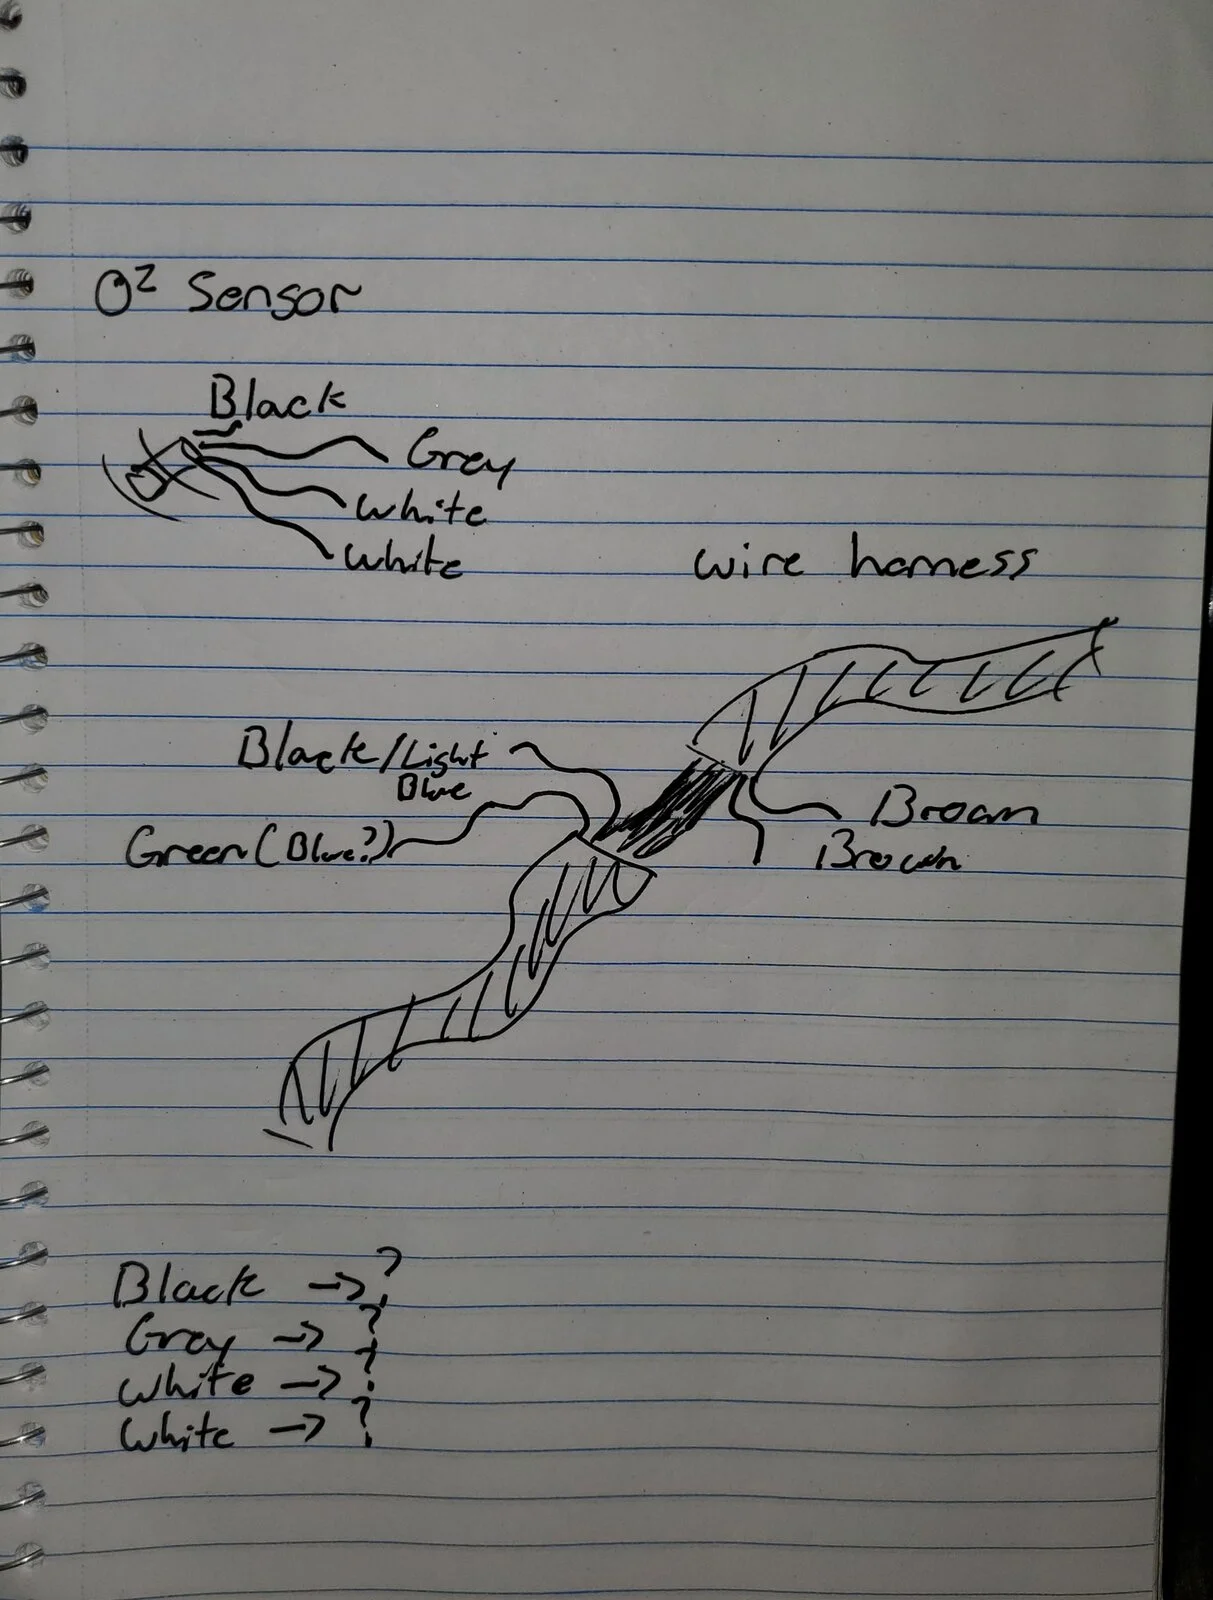 O² Sensor
Black
Grey
white
white
wire harness
Black/Light
Blue
Green (Blue?)
Brown
Brown
Black -> ?
Grey -> ?
white -> ?
white -> ?